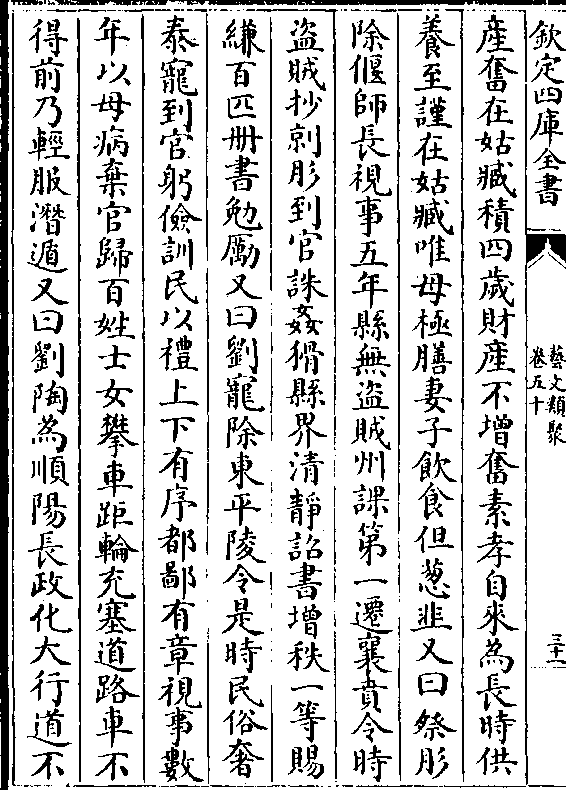 欽定四庫全書
藝文類聚
卷五十
三十一
產奮在姑臧積四歲財產不增奮素孝自來為長時供
養至謹在姑臧唯母極膳妻子飲食但葱韭又曰祭肜
除偃師長視事五年縣無盜賊州課第一遷襄賁令時
盜賊抄剠肜到官誅姦猾縣界清靜詔書增秩一等賜
縑百匹冊書勉勵又曰劉寵除東平陵令是時民俗奢
泰寵到官躬儉訓民以禮上下有序都鄙有章視事數
年以母病棄官歸百姓士女攀車距輪充塞道路車不
得前乃輕服潛遁又曰劉陶為順陽長政化大行道不